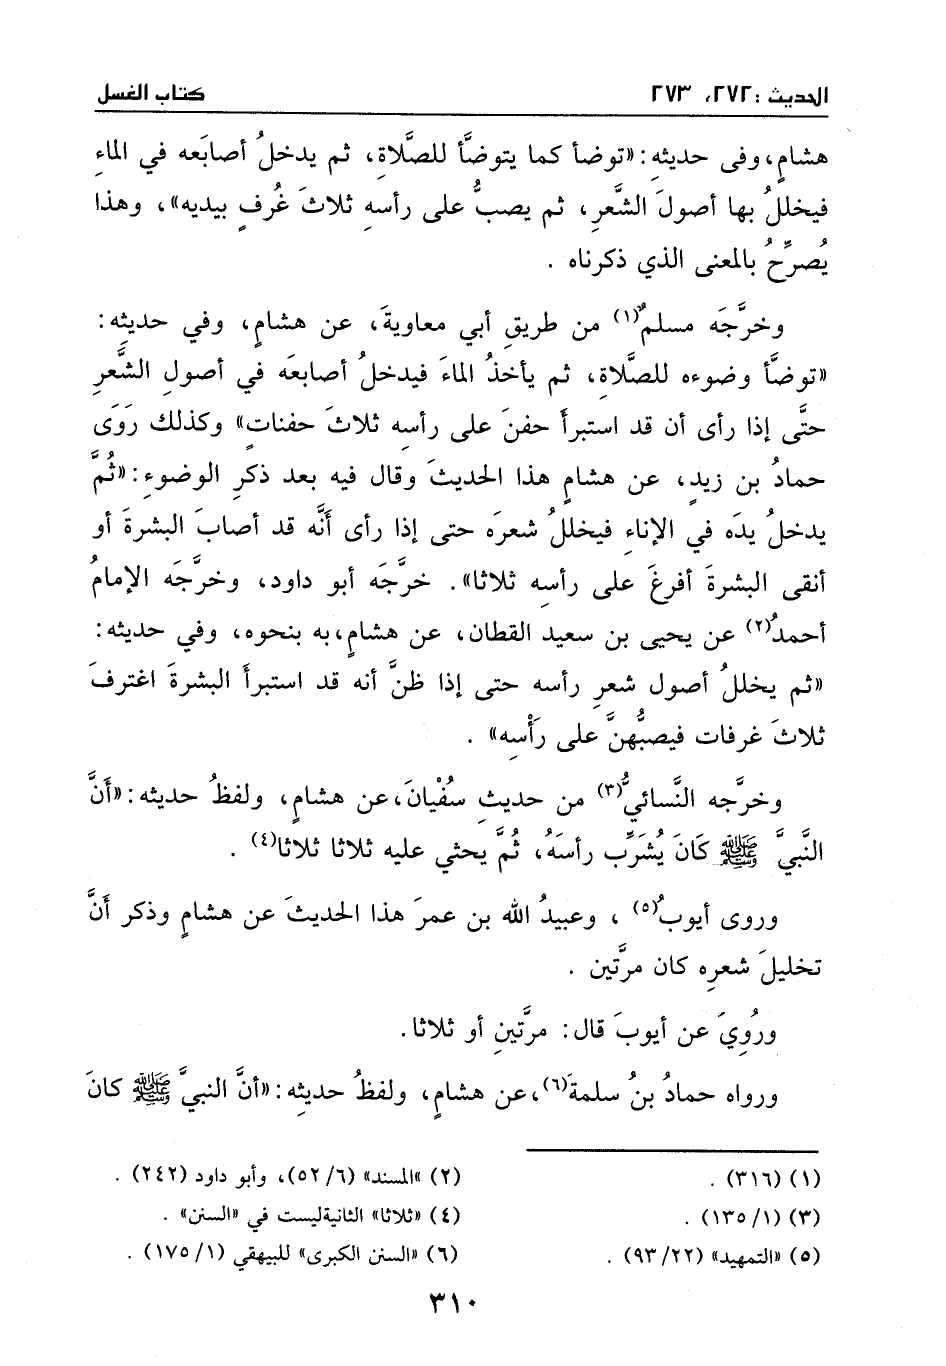 الحديث : ٢٧٢، ٢٧٣ كتاب الغسل
هشامٍ، وفى حديثِه : «توضأ كما يتوضَّأ للصَّلاةِ، ثم يدخلُ أصابَعه في الماءِ
فيخللُ بها أصولَ الشَّعرِ، ثم يصبُّ على رأسهِ ثلاثَ غُرفٍ بيديه»، وهذا
يُصرِّحُ بالمعنى الذي ذكرناه .
وخرَّجَه مسلمٌ(١) من طريقِ أبي معاويةَ، عن هشامٍ، وفي حديثِه :
«توضَّأ وضوءه للصَّلاةِ، ثم يأخذُ الماءَ فيدخلُ أصابعَه في أصولِ الشَّعرِ
حتَّى إذا رأى أن قد استبرأَ حفنَ على رأسِه ثلاثَ حفناتٍ» وكذلك رَوَى
حمادُ بن زيدٍ، عن هشامٍ هذا الحديثَ وقال فيه بعد ذكرِ الوضوءِ : «ثُمَّ
يدخلُ يدَه في الإناءِ فيخللُ شعرَه حتى إذا رأى أنَّه قد أصابَ البشرةَ أو
أنقى البشرةَ أفرغَ على رأسِه ثلاثا». خرَّجَه أبو داود، وخرَّجَه الإمامُ
أحمدُ(٢) عن يحيى بن سعيد القطان، عن هشامٍ، به بنحوه، وفي حديثه :
«ثم يخللُ أصول شعرِ رأسه حتى إذا ظنَّ أنه قد استبرأَ البشرةَ اغترفَ
ثلاثَ غرفات فيصبُّهنَّ على رَأْسِه» .
وخرَّجه النَّسائيُّ(٣) من حديثِ سُفْيانَ، عن هشامٍ، ولفظُ حديثه : «أنَّ
النَّبيَّ ﷺ كَانَ يُشَرِّب رأسَهُ، ثُمَّ يحثي عليه ثلاثا ثلاثا(٤) .
وروى أيوبُ(٥) ، وعبيدُ الله بن عمرَ هذا الحديثَ عن هشامٍ وذكر أنَّ
تخليلَ شعرِه كان مرَّتين .
ورُوِيَ عن أيوبَ قال : مرَّتينِ أو ثلاثا .
ورواه حمادُ بنُ سلمةَ(٦)، عن هشامٍ، ولفظُ حديثِه : «أنَّ النبيَّ ﷺ كانَ
(١) (٣١٦) . (٢) «المسند» (٦/ ٥٢)، وأبو داود (٢٤٢) .
(٣) (١/ ١٣٥) . (٤) «ثلاثا» الثانية ليست في «السنن» .
(٥) «التمهيد» (٢٢/ ٩٣) . (٦) «السنن الكبرى» للبيهقي (١/ ١٧٥) .
٣١٠